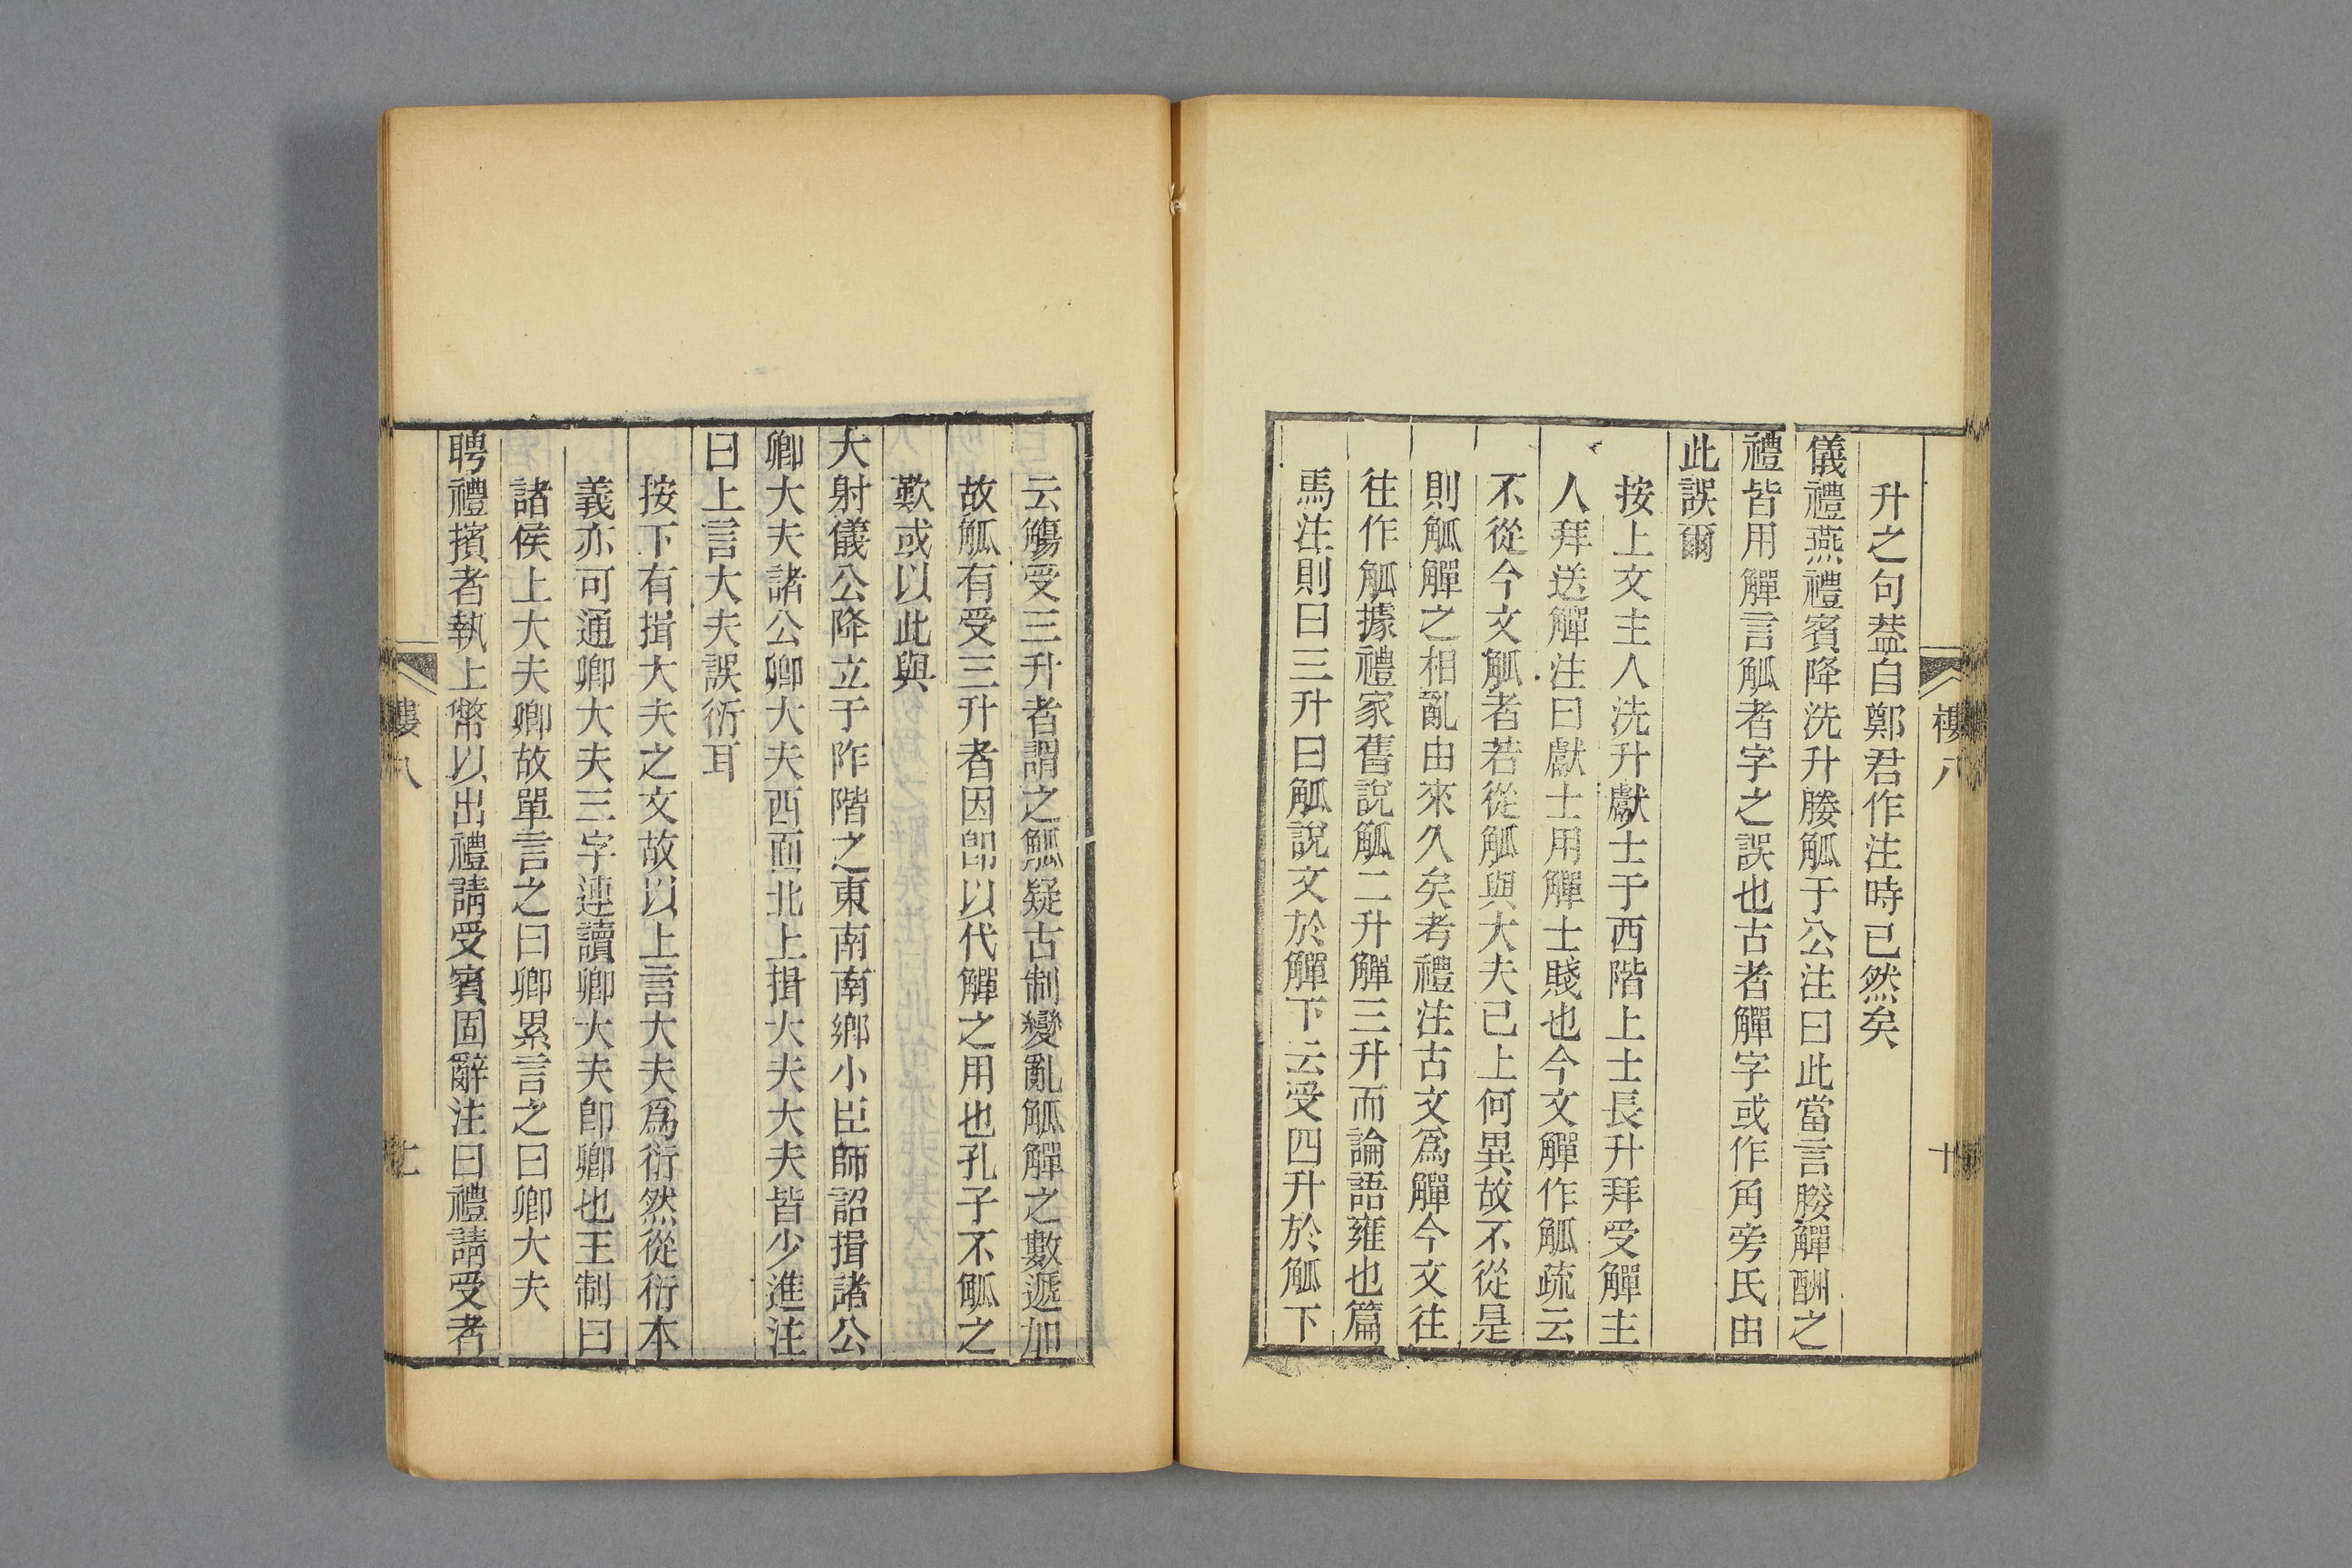 升之句葢自鄭君作注時已然矣
儀禮燕禮賓降洗升媵觚于公注曰此當言媵觶酬之
禮皆用觶言觚者字之誤也古者觶字或作角旁氏由
此誤爾
按上文主人洗升獻士于西階上士長升拜受觶主
人拜送觶注曰獻士用觶士賤也今文觶作觚疏云
不從今文觚者若從觚與大夫已上何異故不從是
則觚觶之相亂由來久矣考禮注古文爲觶今文往
往作觚據禮家舊說觚二升觶三升而論語雍也篇
馬注則曰三升曰觚說文於觶下云受四升於觚下
樓八
十
云觴受三升者謂之觚疑古制變亂觚觶之數遞加
故觚有受三升者因卽以代觶之用也孔子不觚之
歎或以此與
大射儀公降立于阼階之東南南鄉小臣師詔揖諸公
卿大夫諸公卿大夫西面北上揖大夫大夫皆少進注
曰上言大夫誤衍耳
按下有揖大夫之文故以上言大夫爲衍然從衍本
義亦可通卿大夫三字連讀卿大夫卽卿也王制曰
諸侯上大夫卿故單言之曰卿累言之曰卿大夫
聘禮擯者執上幣以出禮請受賓固辭注曰禮請受者
樓八